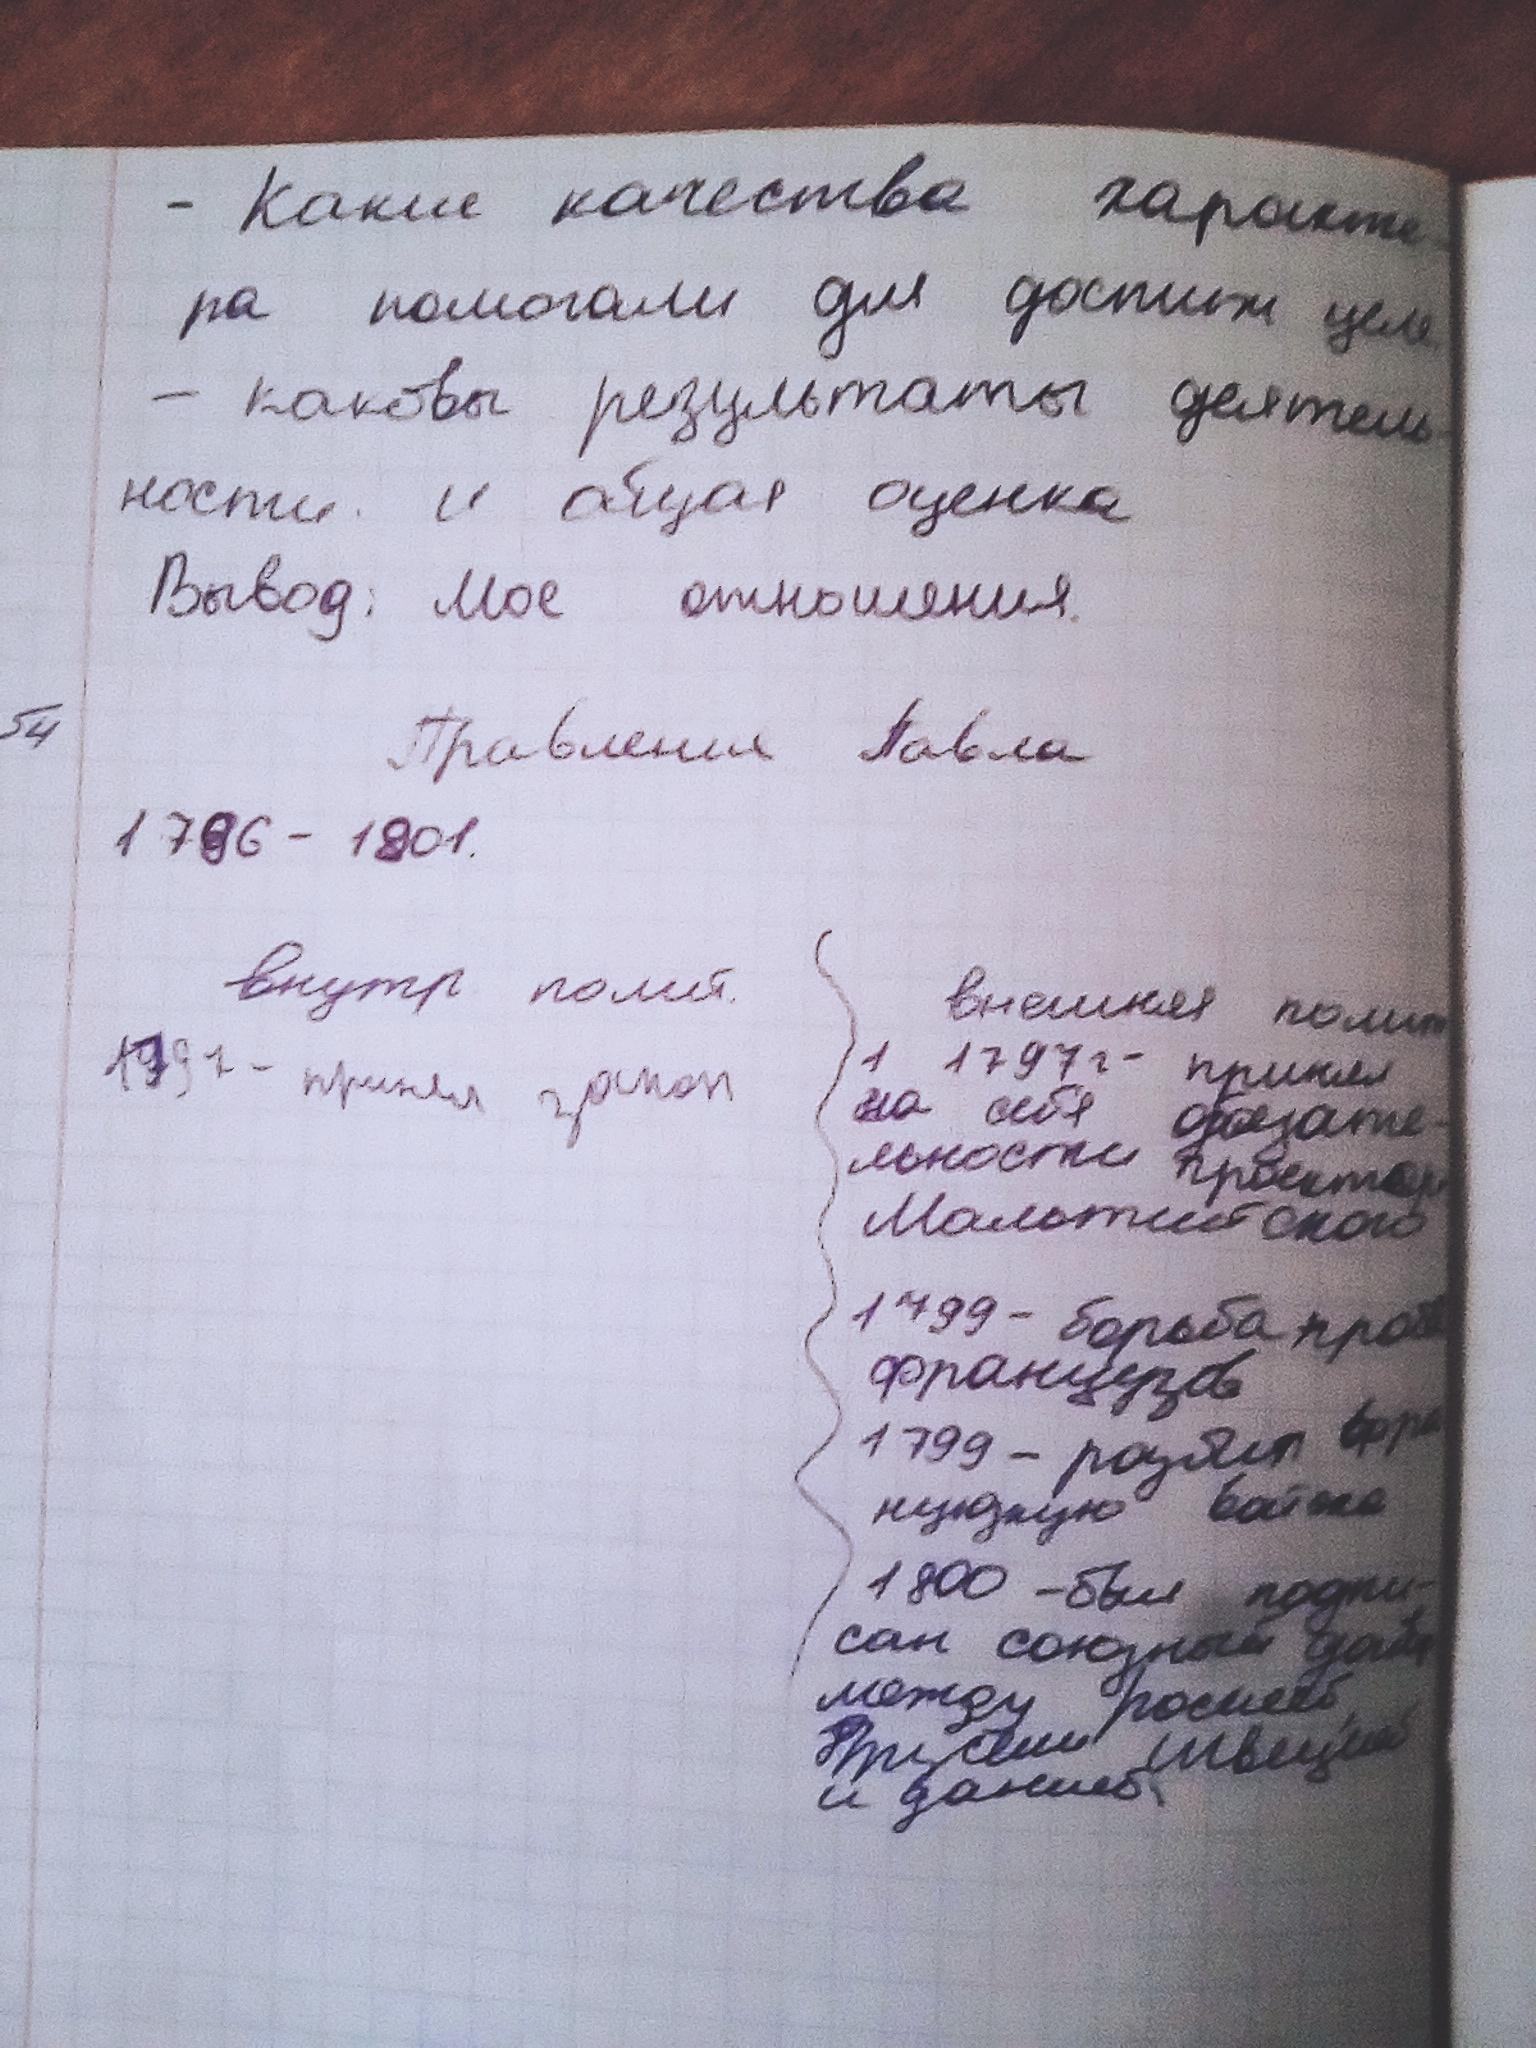 - Какие качества характе-
ра помогали для достиж целе
- каковы результаты деятель-
ности. и общая оценка
Вывод: Мое отношения.
54
Правления Павла
1796 - 1801.
внутр полит.
1797 - принял закон
внешняя полит
1 1797г - принял
на себя обязате-
льности проектор
Мальтийского
1799 - борьба
французов
1799 - разбил
войска
1800 - был подпи-
сан союзный
между росией,
Прусией Швецией
и данией.